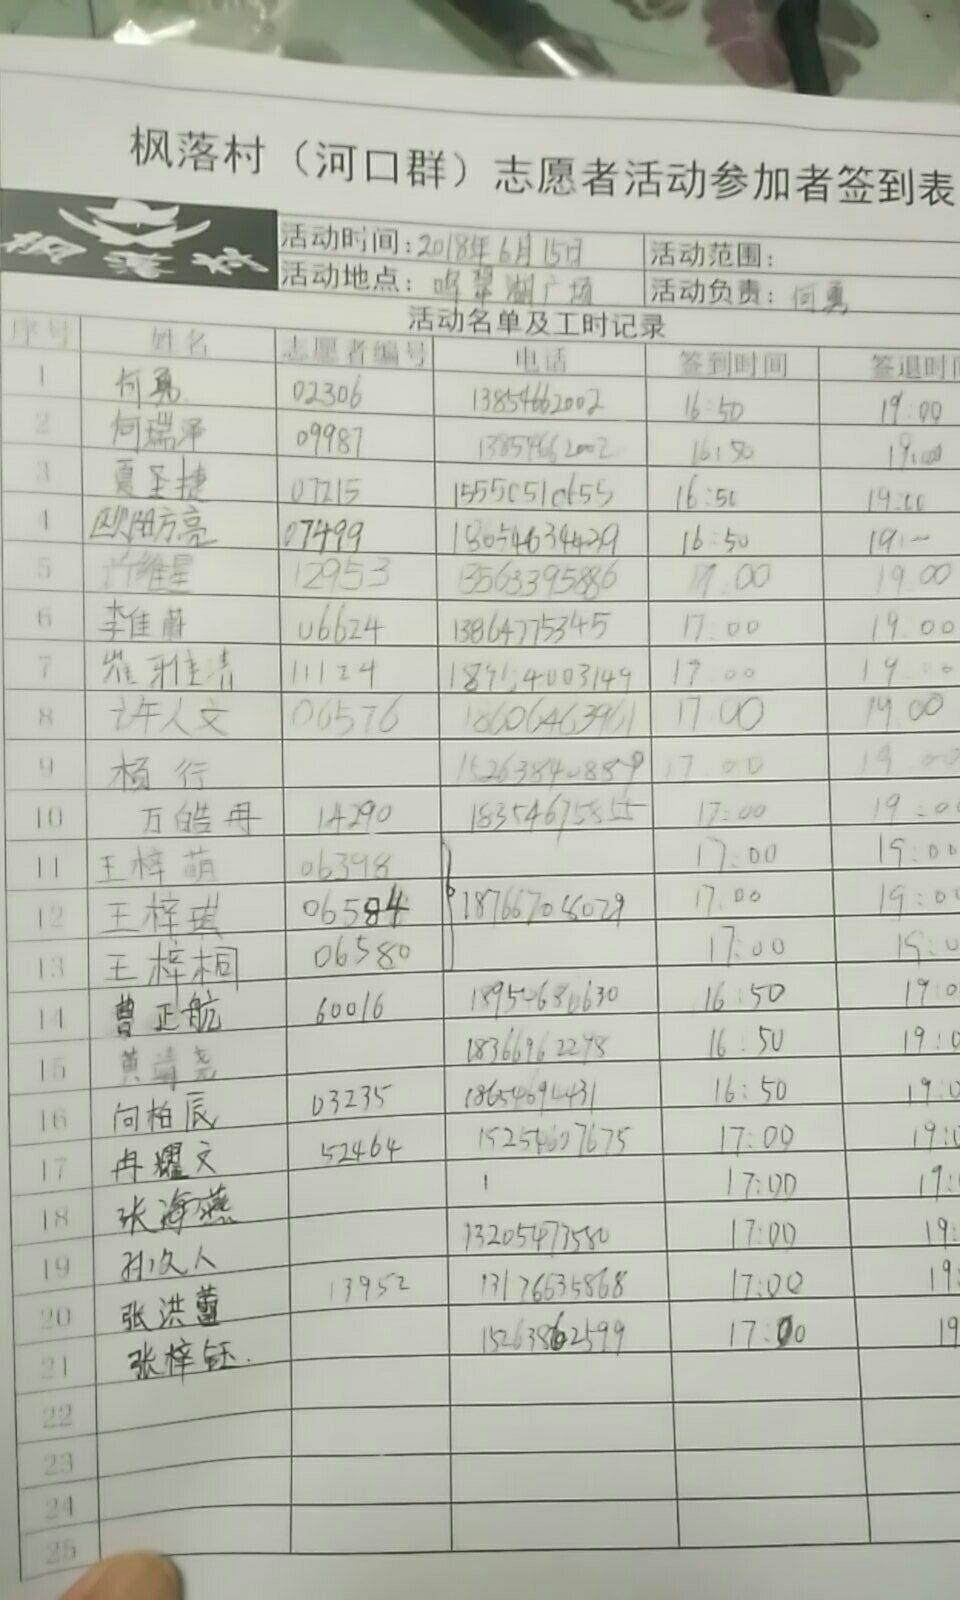 枫落村（河口群）志愿者活动参加者签到表
枫落村
活动时间：2018年6月15日 活动范围：
活动地点：鸣翠湖广场 活动负责：何勇
活动名单及工时记录
序号 姓名 志愿者编号 电话 签到时间 签退时间
1 何勇 02306 13854662002 16:50 19:00
2 何瑞泽 09987 13854662002 16:50 19:00
3 夏圣捷 07215 15550510655 16:50 19:00
4 欧阳方亮 07499 18054634429 16:50
5 许维星 12953 13563395886 17.00 19.00
6 李佳蔚 06624 13864775345 17:00 19.00
7 崔雅清 11124 17.00 19.00
8 许人文 06576 18606463961 17.00 19.00
9 杨行 15263840889 17.00 19.00
10 万皓冉 14290 18354675855 17:00 19:00
11 王梓萌 06398 17:00 19:00
12 王梓琪 06584 18766708029 17.00 19:00
13 王梓桐 06580 17:00 19:0
14 曹正航 60016 18954680630 16:50 19:0
15 黄靖尧 18366962298 16:50 19:0
16 向柏辰 03235 18654694431 16:50 19:0
17 冉耀文 52464 15254607675 17:00 19:0
18 张海燕 17:00 19:
19 孙久人 13205473580 17:00 19:
20 张洪蕾 13952 13176635868 17:00 19:
21 张梓钰. 15263862599 17:00 19
22
23
24
25